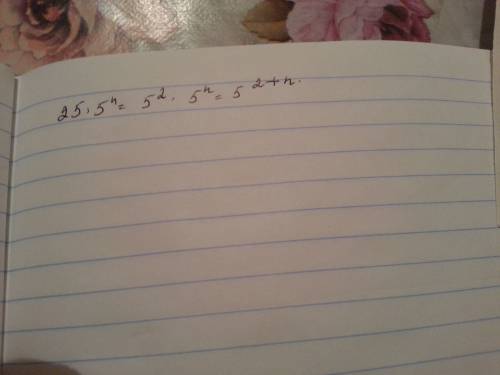 25 · 5ⁿ = 5² · 5ⁿ = 5²⁺ⁿ.